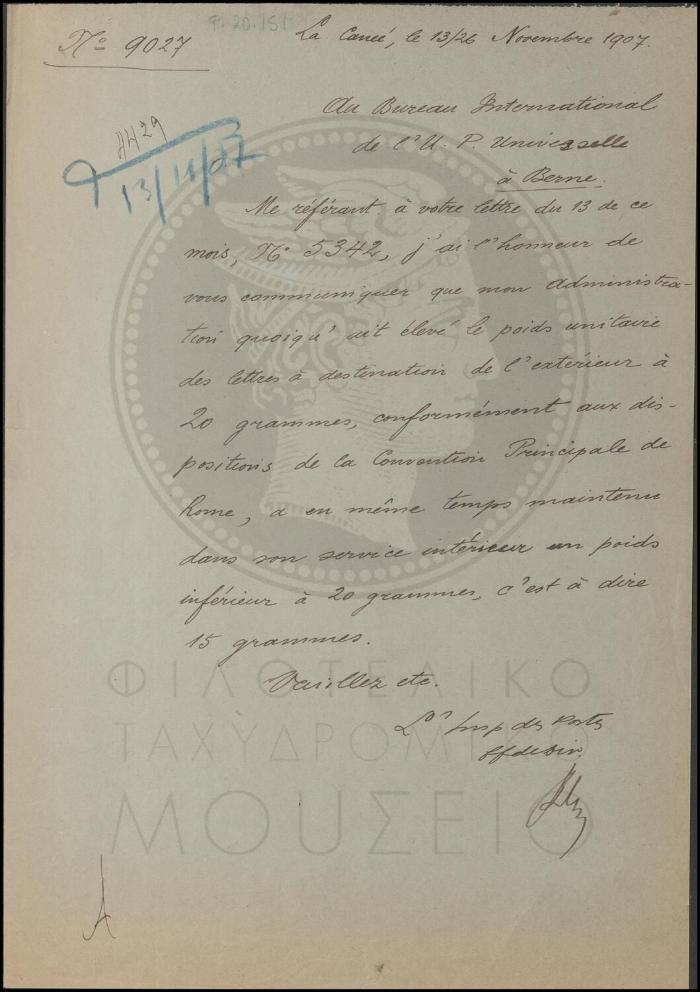 Φ.20./51
Nº 9027
La Caneé, le 13/26 Novembre 1907.
Au Bureau International
de l'U. P. Universelle
à Berne.
13/11/07
Me référant à votre lettre du 13 de ce
mois, Nº 5342, j'ai l'honneur de
vous communiquer que mon administra-
tion quoiqu' ait élevé le poids unitaire
des lettres à destination de l'extérieur à
20 grammes, conformément aux dis-
positions de la Convention Principale de
Rome, a en même temps maintenu
dans son service intérieur un poids
inférieur à 20 grammes, c'est à dire
15 grammes.
Veuillez etc.
des Postes
ΦΙΛΟΤΕΛΙΚΟ
ΤΑΧΥΔΡΟΜΙΚΟ
ΜΟΥΣΕΙΟ